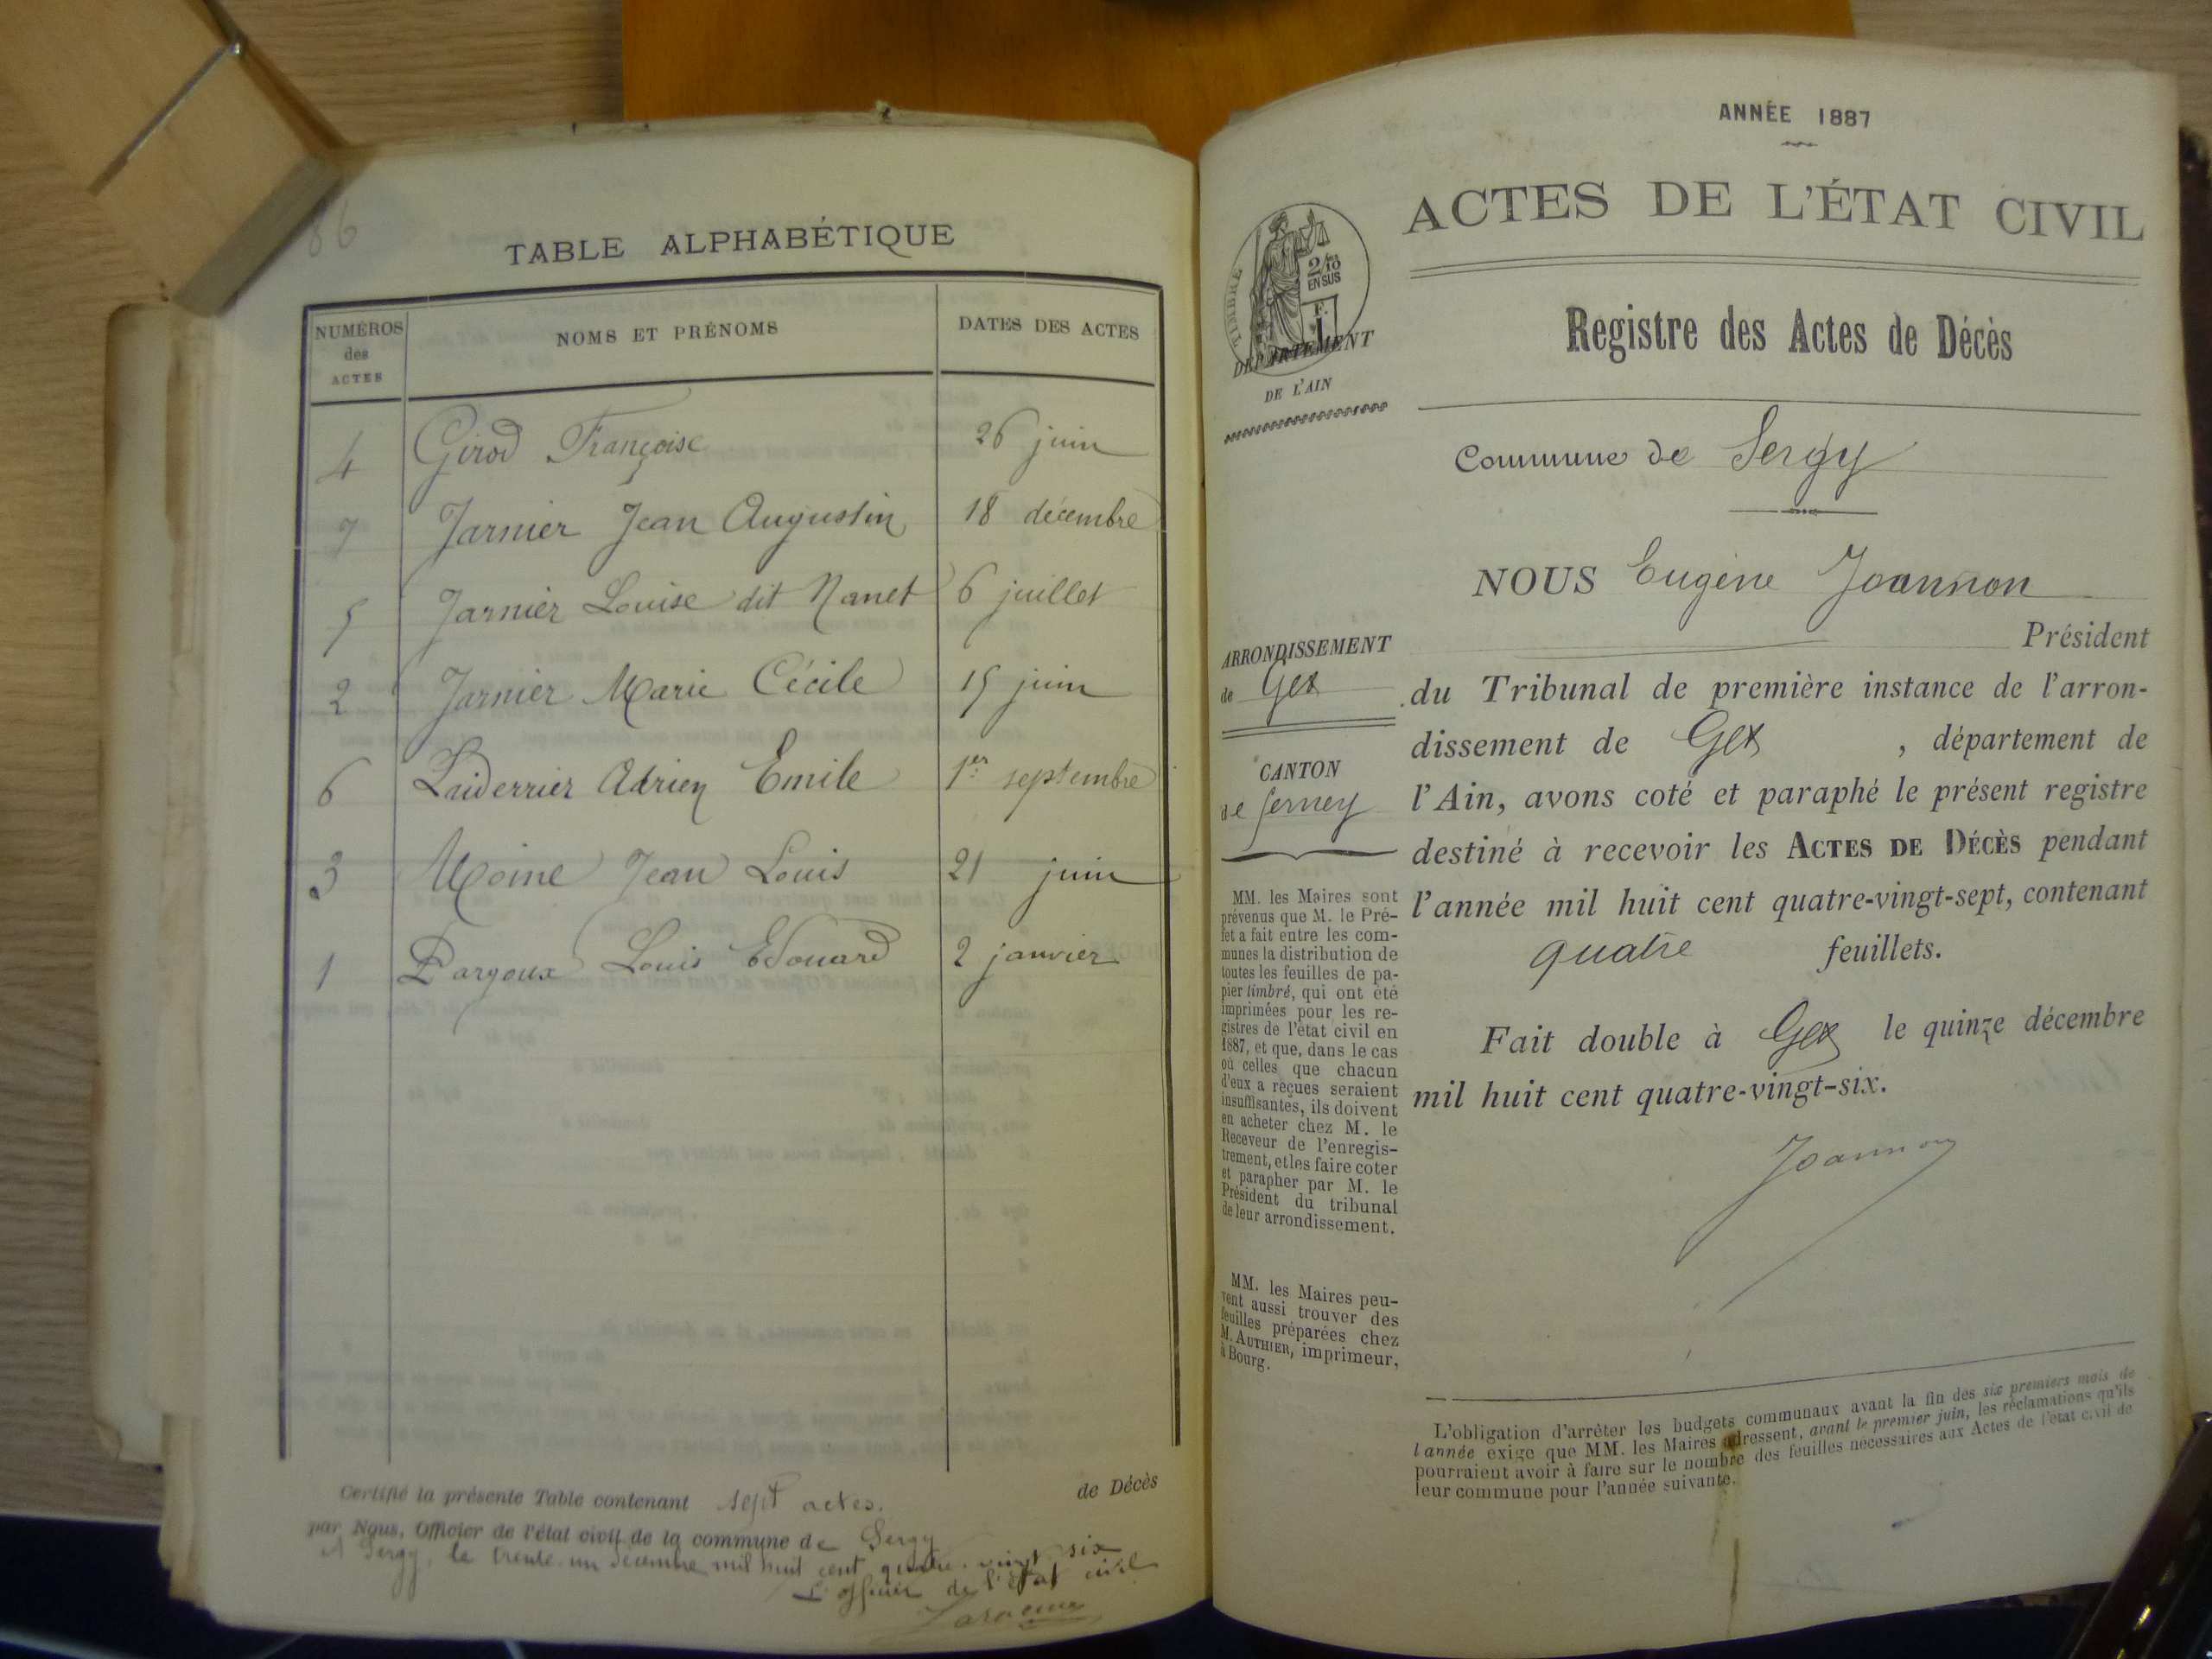 86
TABLE ALPHABÉTIQUE
NUMÉROS des ACTES NOMS ET PRÉNOMS DATES DES ACTES
4 Girod Françoise 26 juin
7 Jarnier Jean Augustin 18 décembre
5 Jarnier Louise dit Nanet 6 juillet
2 Jarnier Marie Cécile 15 juin
6 Laiderrier Adrien Emile 1er septembre
3 Moine Jean Louis 21 juin
1 Pargoux Louis Edouard 2 janvier
Certifié la présente Table contenant sept actes. de Décès
par Nous, Officier de l'état civil de la commune de Sergy
A Sergy, le trente un décembre mil huit cent quatre-vingt six
L'officier de l'état civil
ANNÉE 1887
ACTES DE L'ÉTAT CIVIL
TIMBRE
2/10
EN SUS
F.
DÉPARTEMENT
DE L'AIN
Registre des Actes de Décès
Commune de Sergy
NOUS Eugène Joannon
Président
ARRONDISSEMENT
de Gex
CANTON
de Ferney
du Tribunal de première instance de l'arron-
dissement de Gex , département de
l'Ain, avons coté et paraphé le présent registre
destiné à recevoir les ACTES DE DÉCÈS pendant
l'année mil huit cent quatre-vingt-sept, contenant
quatre feuillets.
Fait double à Gex le quinze décembre
mil huit cent quatre-vingt-six.
Joannon
MM. les Maires sont
prévenus que M. le Pré-
fet a fait entre les com-
munes la distribution de
toutes les feuilles de pa-
pier timbré, qui ont été
imprimées pour les re-
gistres de l'état civil en
1887, et que, dans le cas
où celles que chacun
d'eux a reçues seraient
insuffisantes, ils doivent
en acheter chez M. le
Receveur de l'enregis-
trement, et les faire coter
et parapher par M. le
Président du tribunal
de leur arrondissement.
MM. les Maires peu-
vent aussi trouver des
feuilles préparées chez
M. AUTHIER, imprimeur,
à Bourg.
L'obligation d'arrêter les budgets communaux avant la fin des six premiers mois de
l'année exige que MM. les Maires adressent, avant le premier juin, les réclamations qu'ils
pourraient avoir à faire sur le nombre des feuilles nécessaires aux Actes de l'état civil de
leur commune pour l'année suivante.